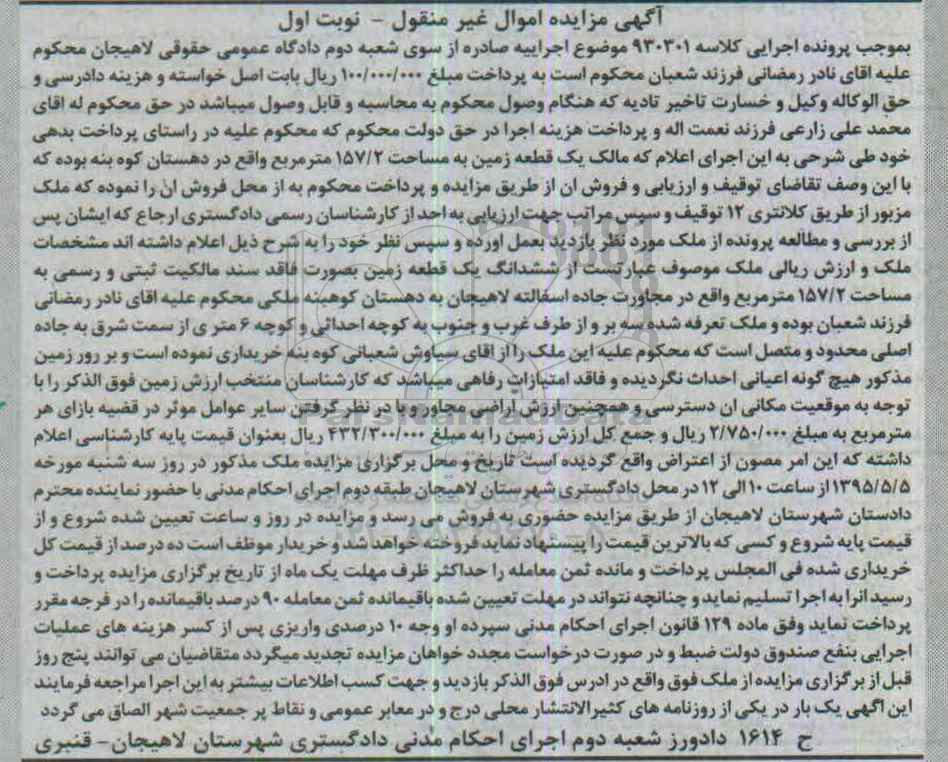 آگهی مزایده اموال غیر منقول - نوبت اول
بموجب پرونده اجرایی کلاسه ۹۳۰۳۰۱ موضوع اجراییه صادره از سوی شعبه دوم دادگاه عمومی حقوقی لاهیجان محکوم
علیه اقای نادر رمضانی فرزند شعبان محکوم است به پرداخت مبلغ ۱۰۰/۰۰۰/۰۰۰ ریال بابت اصل خواسته و هزینه دادرسی و
حق الوکاله وکیل و خسارت تاخیر تادیه که هنگام وصول محکوم به محاسبه و قابل وصول میباشد در حق محکوم له اقای
محمد علی زارعی فرزند نعمت اله و پرداخت هزینه اجرا در حق دولت محکوم که محکوم علیه در راستای پرداخت بدهی
خود طی شرحی به این اجرای اعلام که مالک یک قطعه زمین به مساحت ۱۵۷/۲ مترمربع واقع در دهستان کوه بنه بوده که
با این وصف تقاضای توقیف و ارزیابی و فروش ان از طریق مزایده و پرداخت محکوم به از محل فروش ان را نموده که ملک
مزبور از طریق کلانتری ۱۲ توقیف و سپس مراتب جهت ارزیابی به احد از کارشناسان رسمی دادگستری ارجاع که ایشان پس
از بررسی و مطالعه پرونده از ملک مورد نظر بازدید بعمل اورده و سپس نظر خود را به شرح ذیل اعلام داشته اند مشخصات
ملک و ارزش ریالی ملک موصوف عبارتست از ششدانگ یک قطعه زمین بصورت فاقد سند مالکیت ثبتی و رسمی به
مساحت ۱۵۷/۲ مترمربع واقع در مجاورت جاده اسفالته لاهیجان به دهستان کوهبنه ملکی محکوم علیه اقای نادر رمضانی
فرزند شعبان بوده و ملک تعرفه شده سه بر و از طرف غرب و جنوب به کوچه احداثی و کوچه ۶ متر ی از سمت شرق به جاده
اصلی محدود و متصل است که محکوم علیه این ملک را از اقای سیاوش شعبانی کوه بنه خریداری نموده است و بر رور زمین
مذکور هیچ گونه اعیانی احداث نگردیده و فاقد امتیازات رفاهی میباشد که کارشناسان منتخب ارزش زمین فوق الذکر را با
توجه به موقعیت مکانی ان دسترسی و همچنین ارزش اراضی مجاور و با در نظر گرفتن سایر عوامل موثر در قضیه بازای هر
مترمربع به مبلغ ۲/۷۵۰/۰۰۰ ریال و جمع کل ارزش زمین را به مبلغ ۴۳۲/۳۰۰/۰۰۰ ریال بعنوان قیمت پایه کارشناسی اعلام
داشته که این امر مصون از اعتراض واقع گردیده است تاریخ و محل برگزاری مزایده ملک مذکور در روز سه شنبه مورخه
۱۳۹۵/۵/۵ از ساعت ۱۰ الی ۱۲ در محل دادگستری شهرستان لاهیجان طبقه دوم اجرای احکام مدنی با حضور نماینده محترم
دادستان شهرستان لاهیجان از طریق مزایده حضوری به فروش می رسد و مزایده در روز و ساعت تعیین شده شروع و از
قیمت پایه شروع و کسی که بالاترین قیمت را پیشنهاد نماید فروخته خواهد شد و خریدار موظف است ده درصد از قیمت کل
خریداری شده فی المجلس پرداخت و مانده ثمن معامله را حداکثر ظرف مهلت یک ماه از تاریخ برگزاری مزایده پرداخت و
رسید انرا به اجرا تسلیم نماید و چنانچه نتواند در مهلت تعیین شده باقیمانده ثمن معامله ۹۰ درصد باقیمانده را در فرجه مقرر
پرداخت نماید وفق ماده ۱۲۹ قانون اجرای احکام مدنی سپرده او وجه ۱۰ درصدی واریزی پس از کسر هزینه های عملیات
اجرایی بنفع صندوق دولت ضبط و در صورت درخواست مجدد خواهان مزایده تجدید میگردد متقاضیان می توانند پنج روز
قبل از برگزاری مزایده از ملک فوق واقع در ادرس فوق الذکر بازدید و جهت کسب اطلاعات بیشتر به این اجرا مراجعه فرمایند
این اگهی یک بار در یکی از روزنامه های کثیرالانتشار محلی درج و در معابر عمومی و نقاط پر جمعیت شهر الصاق می گردد
ح ۱۶۱۴ دادورز شعبه دوم اجرای احکام مدنی دادگستری شهرستان لاهیجان - قنبری